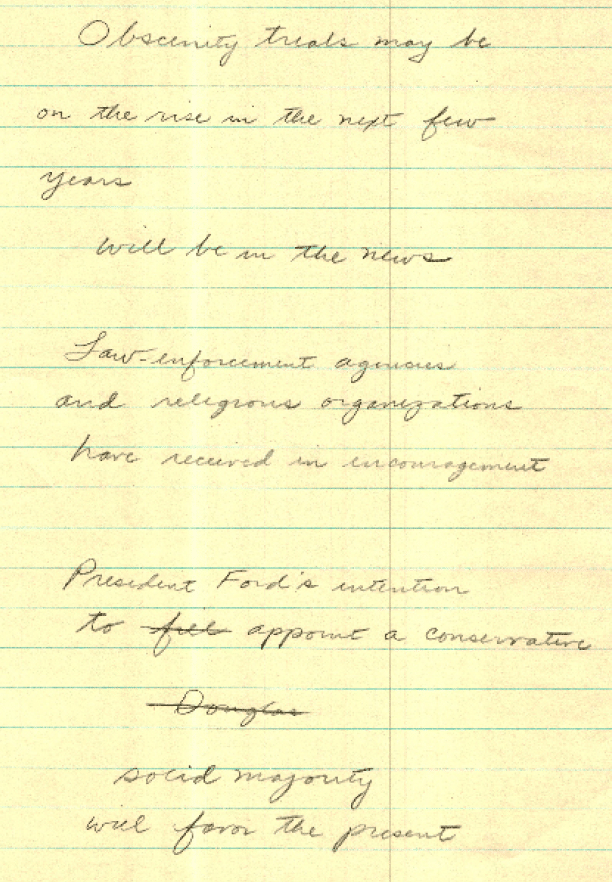 Obscenity trials may be
on the rise in the next few
years
will be in the news
Law-enforcement agencies
and religious organizations
have received in encouragement
President Ford's intention
to fill appoint a conservative
Douglas
solid majority
will favor the present